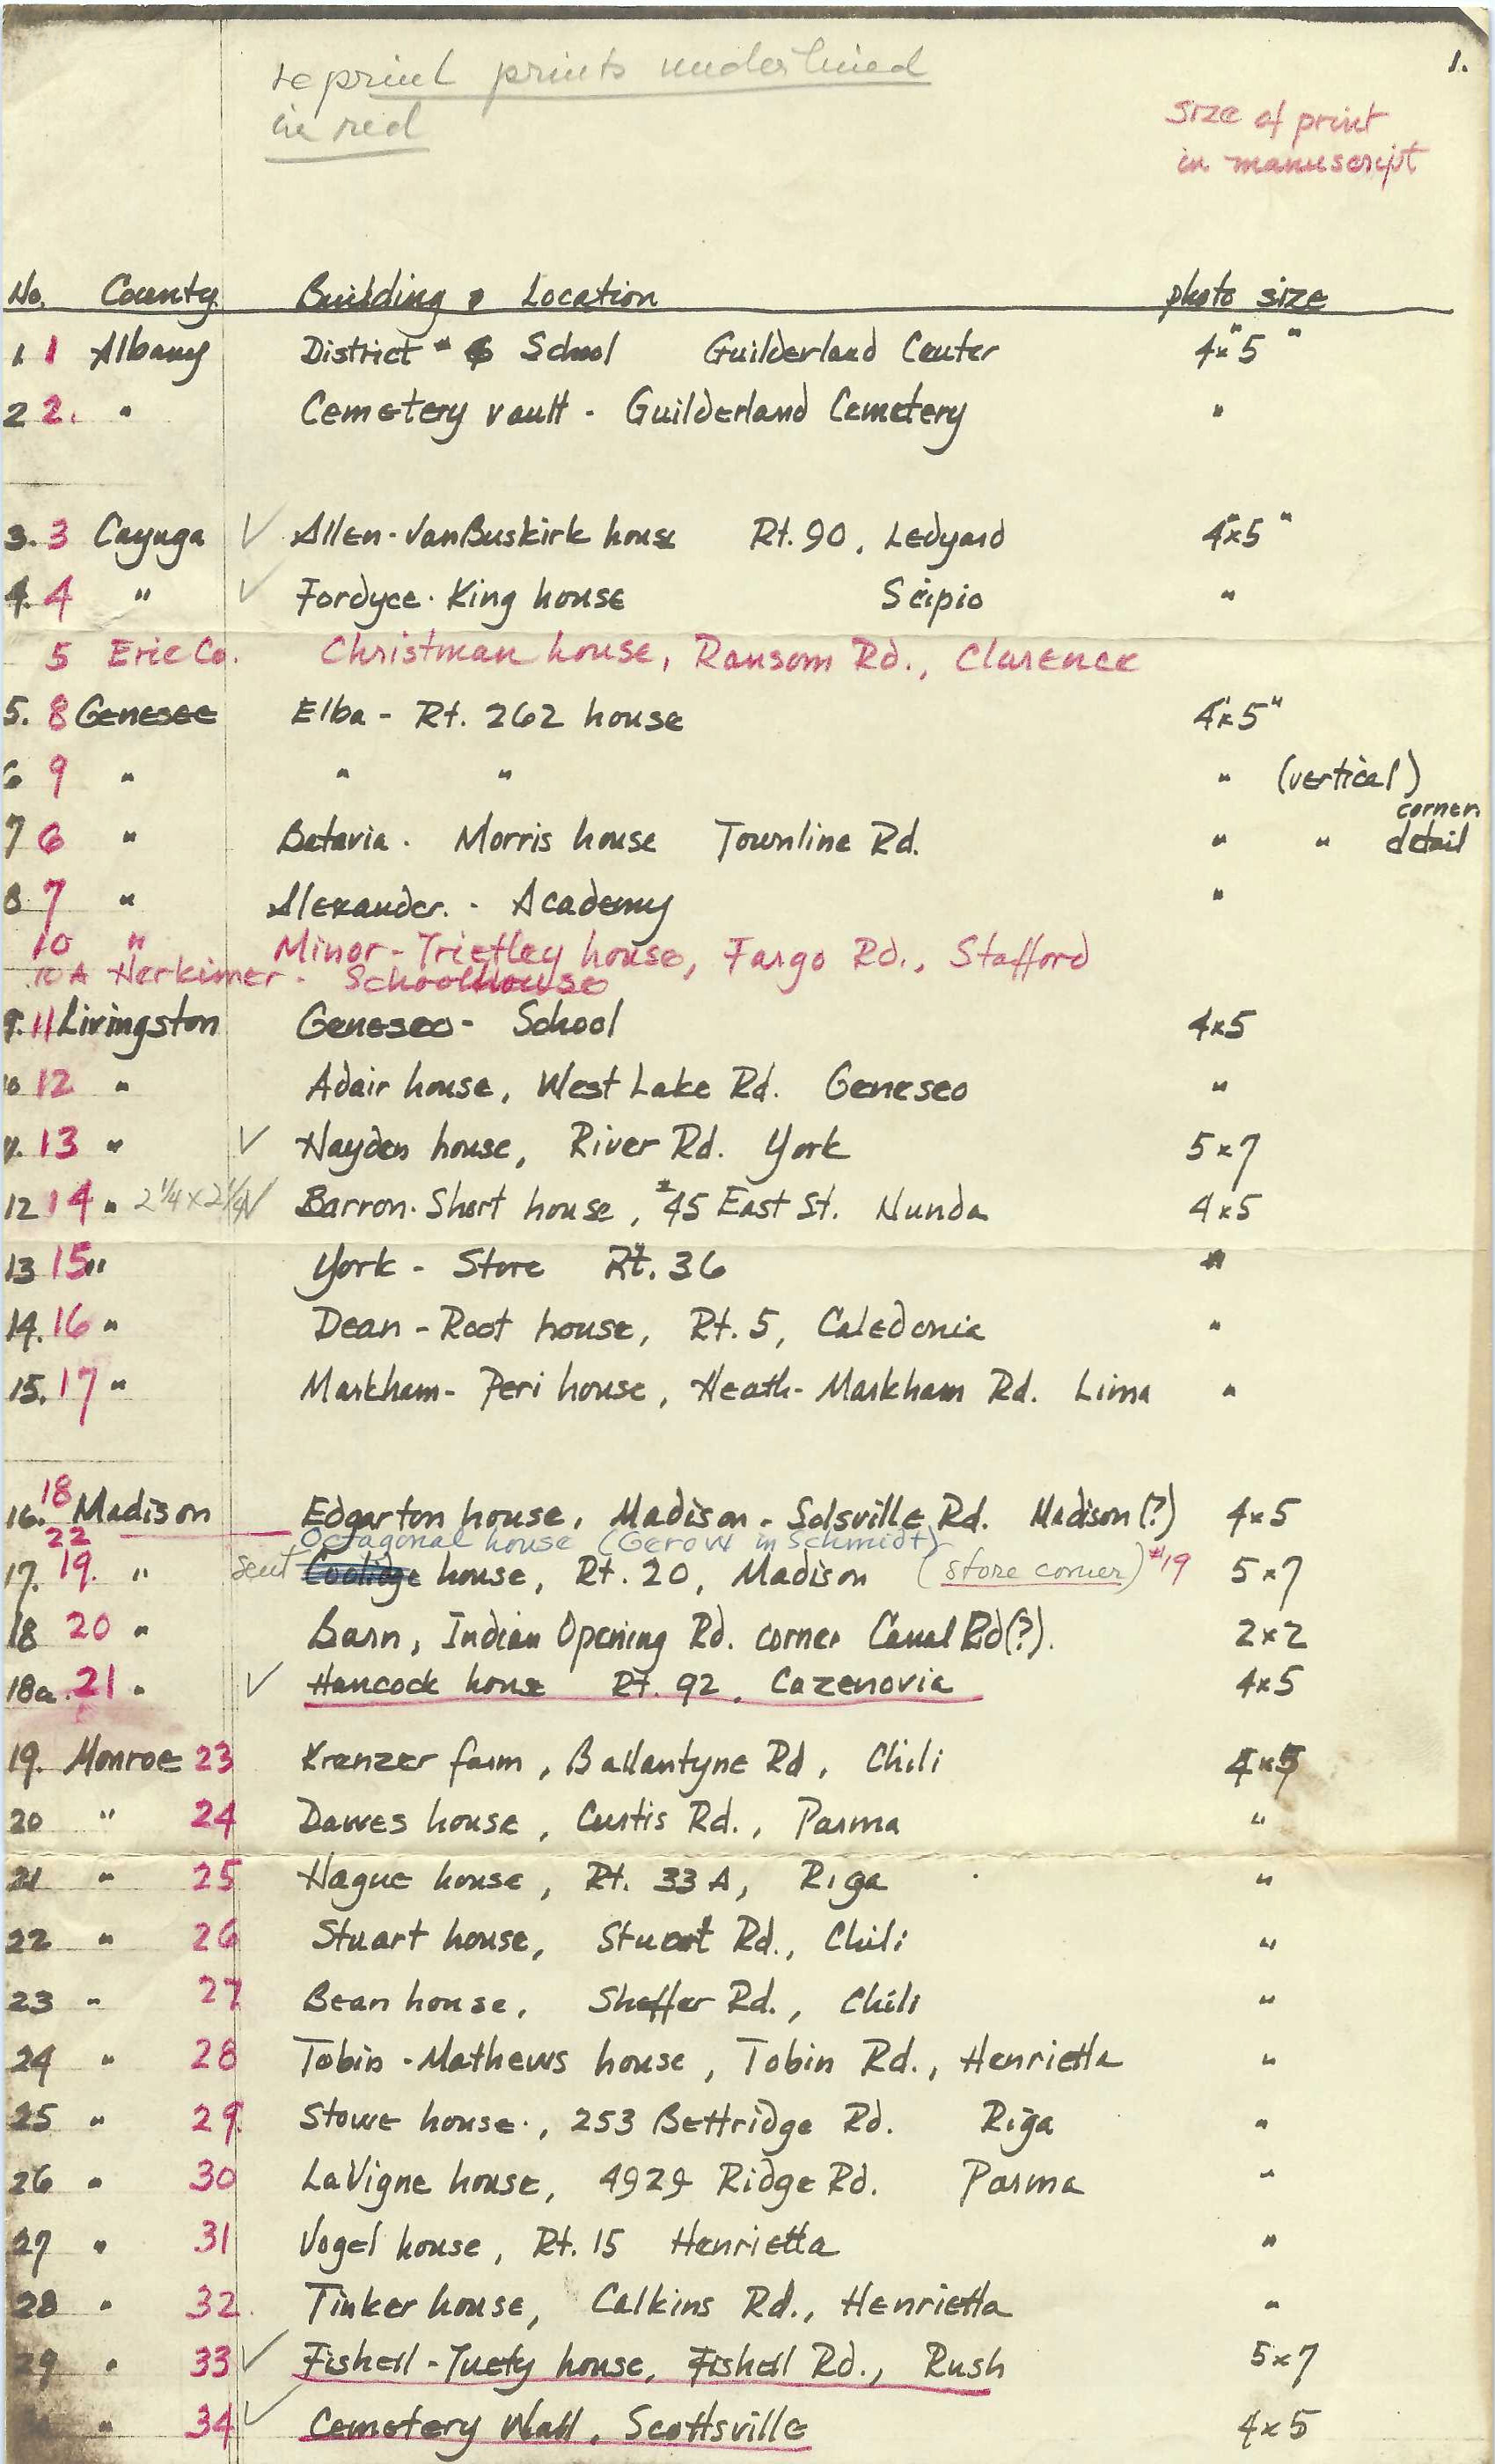 1.
reprint prints underlined
in red
size of print
in manuscript
No. County Building & Location photo size
1. 1 Albany District # 6 School Guilderland Center 4"x5"
2 2. " Cemetery vault - Guilderland Cemetery "
3. 3 Cayuga ✓ Allen-VanBuskirk house Rt. 90, Ledyard 4"x5"
4. 4 " ✓ Fordyce-King house Scipio "
5 Erie Co. Christman house, Ransom Rd., Clarence
5. 8 Genesee Elba - Rt. 262 house 4"x5"
6 9 " " " " (vertical)
7 6 " Batavia. Morris house Townline Rd. " " corner detail
8. 7 " Alexander. - Academy "
10 " Minor-Trietley house, Fargo Rd., Stafford
10A Herkimer - Schoolhouse
9. 11 Livingston Geneseo - School 4x5
10 12 " Adair house, West Lake Rd. Geneseo "
11. 13 " ✓ Hayden house, River Rd. York 5x7
12 14 " 2 1/4 x 2 1/4 ✓ Barron-Short house, #45 East St. Nunda 4x5
13 15 " York - Store Rt. 36 "
14. 16 " Dean-Root house, Rt. 5, Caledonia "
15. 17 " Markham-Peri house, Heath-Markham Rd. Lima "
16. 18 Madison Edgarton house, Madison-Solsville Rd. Madison (?) 4x5
22 Octagonal house (Gerow in Schmidt)
17. 19. " sent Coolidge house, Rt. 20, Madison (store corner) #19 5x7
18 20 " Barn, Indian Opening Rd. corner Canal Rd (?). 2x2
18a. 21 " ✓ Hancock house Rt. 92, Cazenovia 4x5
19. Monroe 23 Kranzer farm, Ballantyne Rd, Chili 4x5
20 " 24 Dawes house, Curtis Rd., Parma "
21 " 25 Hague house, Rt. 33A, Riga "
22 " 26 Stuart house, Stuart Rd., Chili "
23 " 27 Bean house, Sheffer Rd., Chili "
24 " 28 Tobin-Mathews house, Tobin Rd., Henrietta "
25 " 29. Stowe house, 253 Bettridge Rd. Riga "
26 " 30 LaVigne house, 4929 Ridge Rd. Parma "
27 " 31 Vogel house, Rt. 15 Henrietta "
28 " 32. Tinker house, Calkins Rd., Henrietta "
29 " 33 ✓ Fishell-Tuety house, Fishell Rd., Rush 5x7
" 34 ✓ Cemetery Wall, Scottsville 4x5